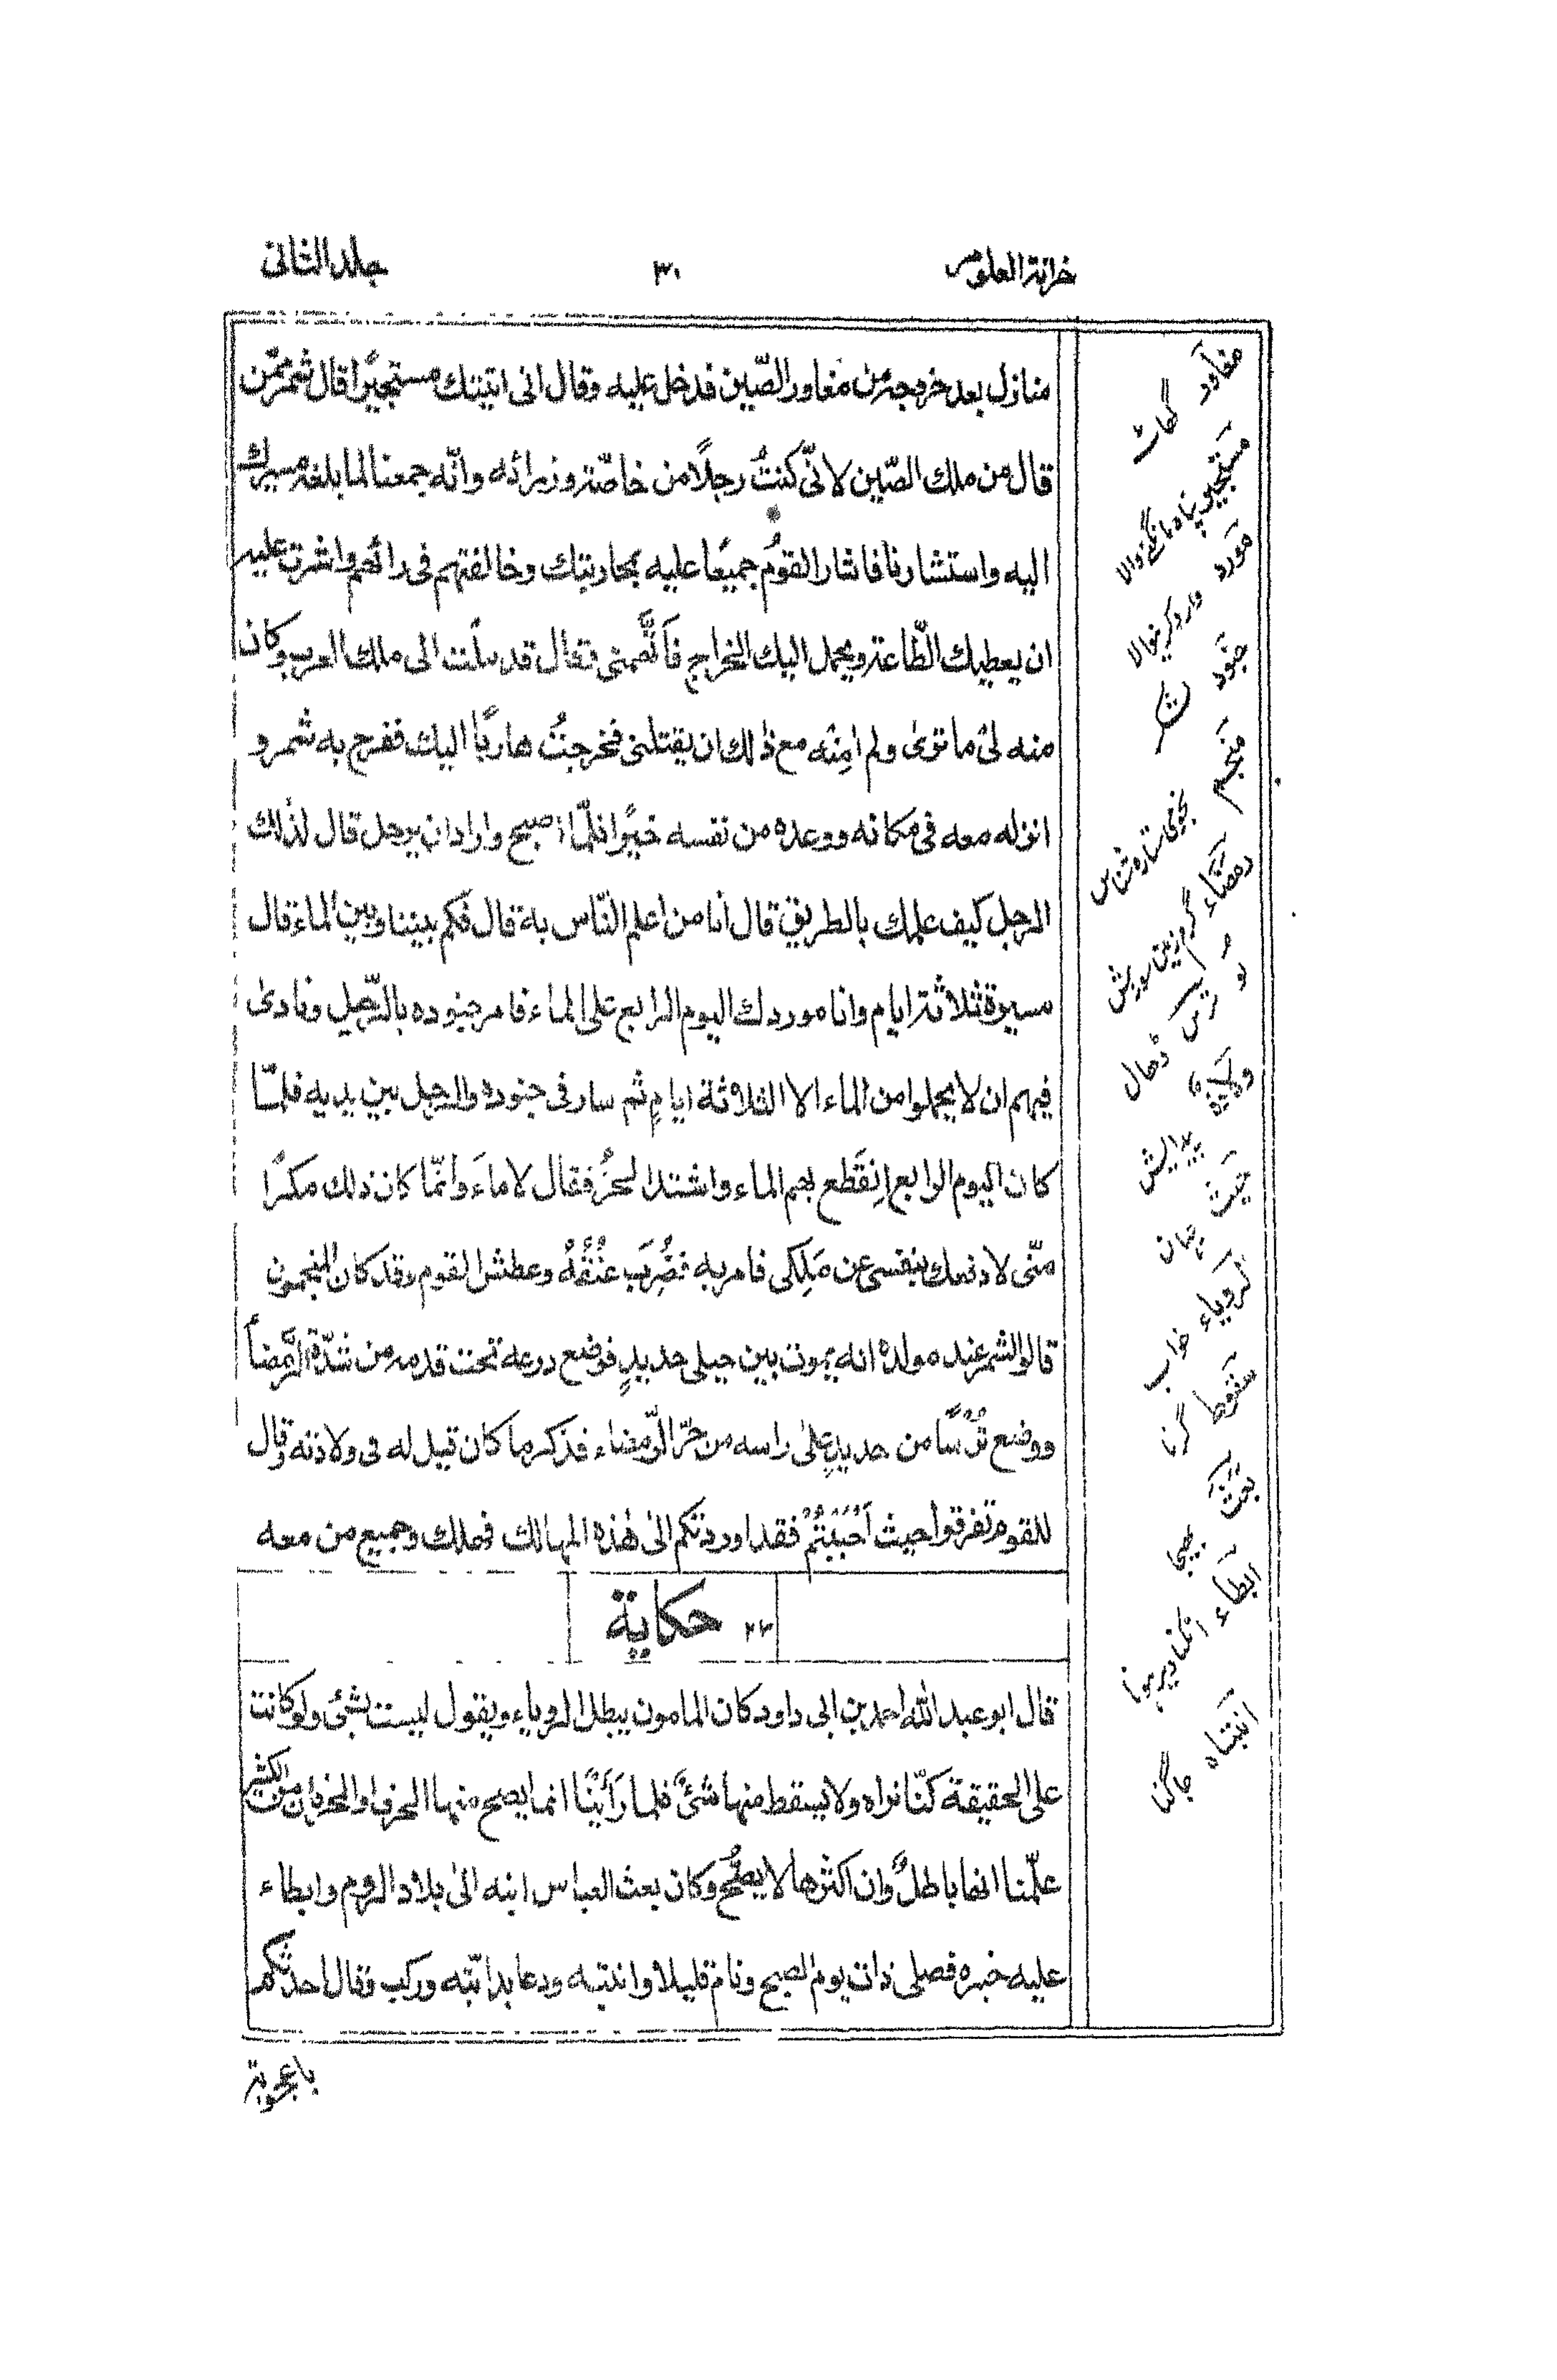 خزانة العلوم ٣٠ جلد الثانی
منازل بعد خروجه من مغاور الصّين فدخل عليه وقال انی اتيتك مستجيرًا قال شمر ممّن
قال من ملك الصّين لانّی كنتُ رجلًا من خاصّة وزرائه وانّه جمعنا لما بلغه مسيرك
اليه واستشارنا فاشار القومُ جميعًا عليه بمحاربتك وخالفتهم فی رائهم واشرت عليه
ان يعطيك الطّاعة ويحمل اليك الخراج فَاتَّهمنی فقال قد ملت الی ملك العرب وكان
منه لی ما تری ولم اٰمِنْه مع ذٰلك ان يقتلنی فخرجتُ هاربًا اليك ففرح به شمر و
انزله معه فی مكانه ووعده من نفسه خيرًا فلمّا اصبح واراد ان يرحل قال لذٰلك
الرجل كيف علمك بالطريق قال أنا من اعلم النّاس به قال فكم بيننا وبين الماء قال
مسيرة ثلاثة ايام وانا موردك اليوم الرابع علی الماء فامر جنوده بالرّحيل ونادی
فيهم ان لا يحملوا من الماء الا الثلاثة ايامٍ ثم سار فی جنوده والرجل بين يديه فلمّا
كان اليوم الرابع اِنقَطع بهم الماء واشتد الحرُّ فقال لا ماءَ وانّما كان ذلك مكرًا
منّی لادفعك بنفسی عن مَلِكی فامر به فضُرِبَ عُنُقُهُ وعطش القوم وقد كان المنجمون
قالوا لشمر عند مولده انه يموت بين جبلی حديدٍ فوضع درعه تحت قدمه من شدّة الرَّمضاء
ووضع تُرْسًا من حديدٍ علی راسه من حرّ الرّمضاء فذكر ما كان قيل له فی ولادته وقال
للقوم تفرقوا حيث اَحْبَبْتُمْ فقد اوردتكم الی هٰذه المهالك فهلك وجميع من معه
حكاية ٢٢
قال ابو عبد اللّٰه احمد بن ابی داود كان المامون يبطل الروياء ويقول ليست بشیء ولو كانت
علی الحقيقة كنّا نراه ولا يسقط منها شیءٌ فلما رَأَيْنَا انما يصح منها الحرف او الحرفان من الكثير
علّمنا انها باطلٌ وان اكثرها لا يصحُّ وكان بعث العباس ابنه الی بلاد الروم وابطاء
عليه خبره فصلی ذات يوم الصبح ونام قليلا وانتبه ودعا بدابّته وركب وقال احدثكم
باعجوبة
مغاور گھاٹ
مستجير پناہ مانگنے والا
مورد وارد کرنیوالا
جنود
منجم نجومی ستارہ شناس
رمضاء گرم زمین
ترس ڈھال
ولادة پیدایش
حیث جہاں
الروياء خواب
سقوط گرنا
بعث بھیجا
ابطاء
انتباہ جاگنا